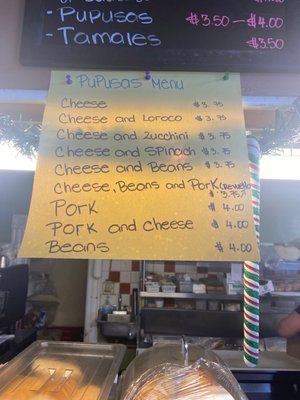 - Pupusas $3.50 - $4.00
- Tamales $3.50
Pupusas Menu
Cheese $3.75
Cheese and Loroco $3.75
Cheese and Zucchini $3.75
Cheese and Spinach $3.75
Cheese and Beans $3.75
Cheese, Beans and Pork
$3.75
Pork $4.00
Pork and Cheese $4.00
Beans $4.00